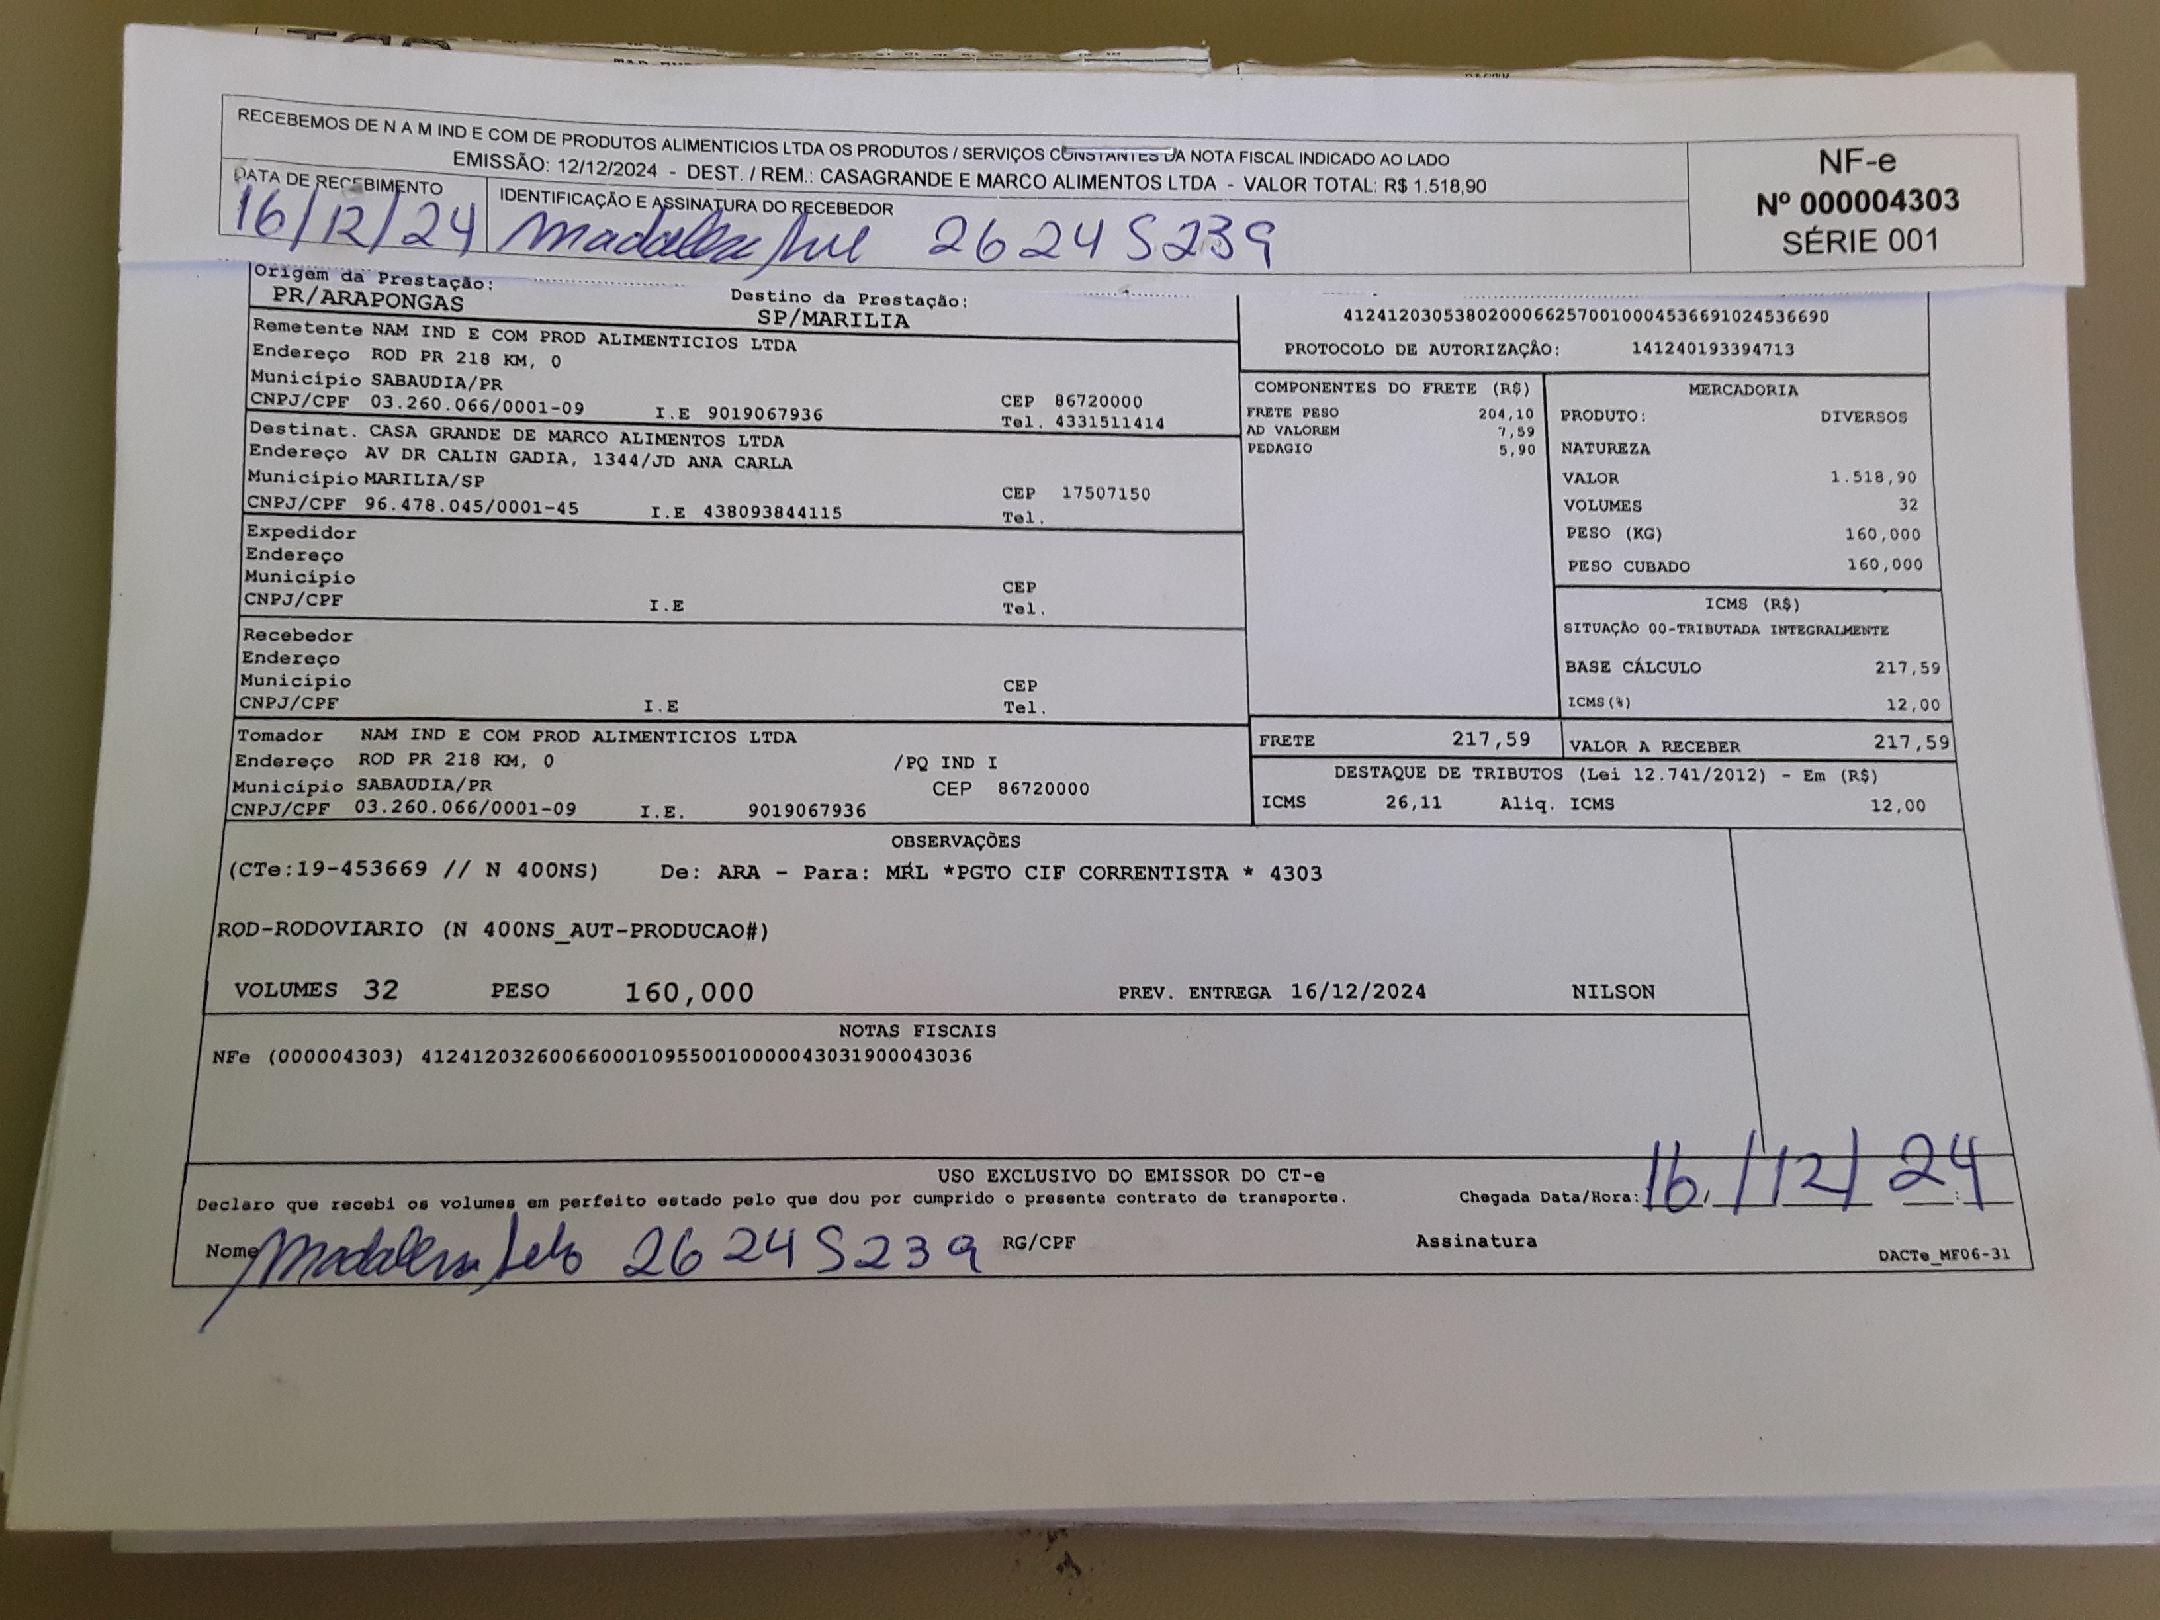 RECEBEMOS DE N A M IND E COM DE PRODUTOS ALIMENTICIOS LTDA OS PRODUTOS / SERVIÇOS CONSTANTES DA NOTA FISCAL INDICADO AO LADO
EMISSÃO: 12/12/2024 - DEST. / REM.: CASAGRANDE E MARCO ALIMENTOS LTDA - VALOR TOTAL: R$ 1.518,90
NF-e
Nº 000004303
SÉRIE 001
DATA DE RECEBIMENTO
16/12/24
IDENTIFICAÇÃO E ASSINATURA DO RECEBEDOR
26245239
Origem da Prestação:
PR/ARAPONGAS
Destino da Prestação:
SP/MARILIA
Remetente NAM IND E COM PROD ALIMENTICIOS LTDA
Endereço ROD PR 218 KM, 0
Município SABAUDIA/PR CEP 86720000
CNPJ/CPF 03.260.066/0001-09 I.E 9019067936 Tel. 4331511414
Destinat. CASA GRANDE DE MARCO ALIMENTOS LTDA
Endereço AV DR CALIN GADIA, 1344/JD ANA CARLA
Município MARILIA/SP CEP 17507150
CNPJ/CPF 96.478.045/0001-45 I.E 438093844115 Tel.
Expedidor
Endereço
Município CEP
CNPJ/CPF I.E Tel.
Recebedor
Endereço
Município CEP
CNPJ/CPF I.E Tel.
Tomador NAM IND E COM PROD ALIMENTICIOS LTDA
Endereço ROD PR 218 KM, 0 /PQ IND I
Município SABAUDIA/PR CEP 86720000
CNPJ/CPF 03.260.066/0001-09 I.E. 9019067936
41241203053802000662570010004536691024536690
PROTOCOLO DE AUTORIZAÇÃO: 141240193394713
COMPONENTES DO FRETE (R$)
FRETE PESO 204,10
AD VALOREM 7,59
PEDAGIO 5,90
MERCADORIA
PRODUTO: DIVERSOS
NATUREZA
VALOR 1.518,90
VOLUMES 32
PESO (KG) 160,000
PESO CUBADO 160,000
ICMS (R$)
SITUAÇÃO 00-TRIBUTADA INTEGRALMENTE
BASE CÁLCULO 217,59
ICMS(%) 12,00
FRETE 217,59 VALOR A RECEBER 217,59
DESTAQUE DE TRIBUTOS (Lei 12.741/2012) - Em (R$)
ICMS 26,11 Aliq. ICMS 12,00
OBSERVAÇÕES
(CTe:19-453669 // N 400NS) De: ARA - Para: MRL *PGTO CIF CORRENTISTA * 4303
ROD-RODOVIARIO (N 400NS_AUT-PRODUCAO#)
VOLUMES 32 PESO 160,000 PREV. ENTREGA 16/12/2024 NILSON
NOTAS FISCAIS
NFe (000004303) 41241203260066000109550010000043031900043036
USO EXCLUSIVO DO EMISSOR DO CT-e
Declaro que recebi os volumes em perfeito estado pelo que dou por cumprido o presente contrato de transporte. Chegada Data/Hora: 16/12/24
Nome 26245239 RG/CPF Assinatura
DACTe_MF06-31